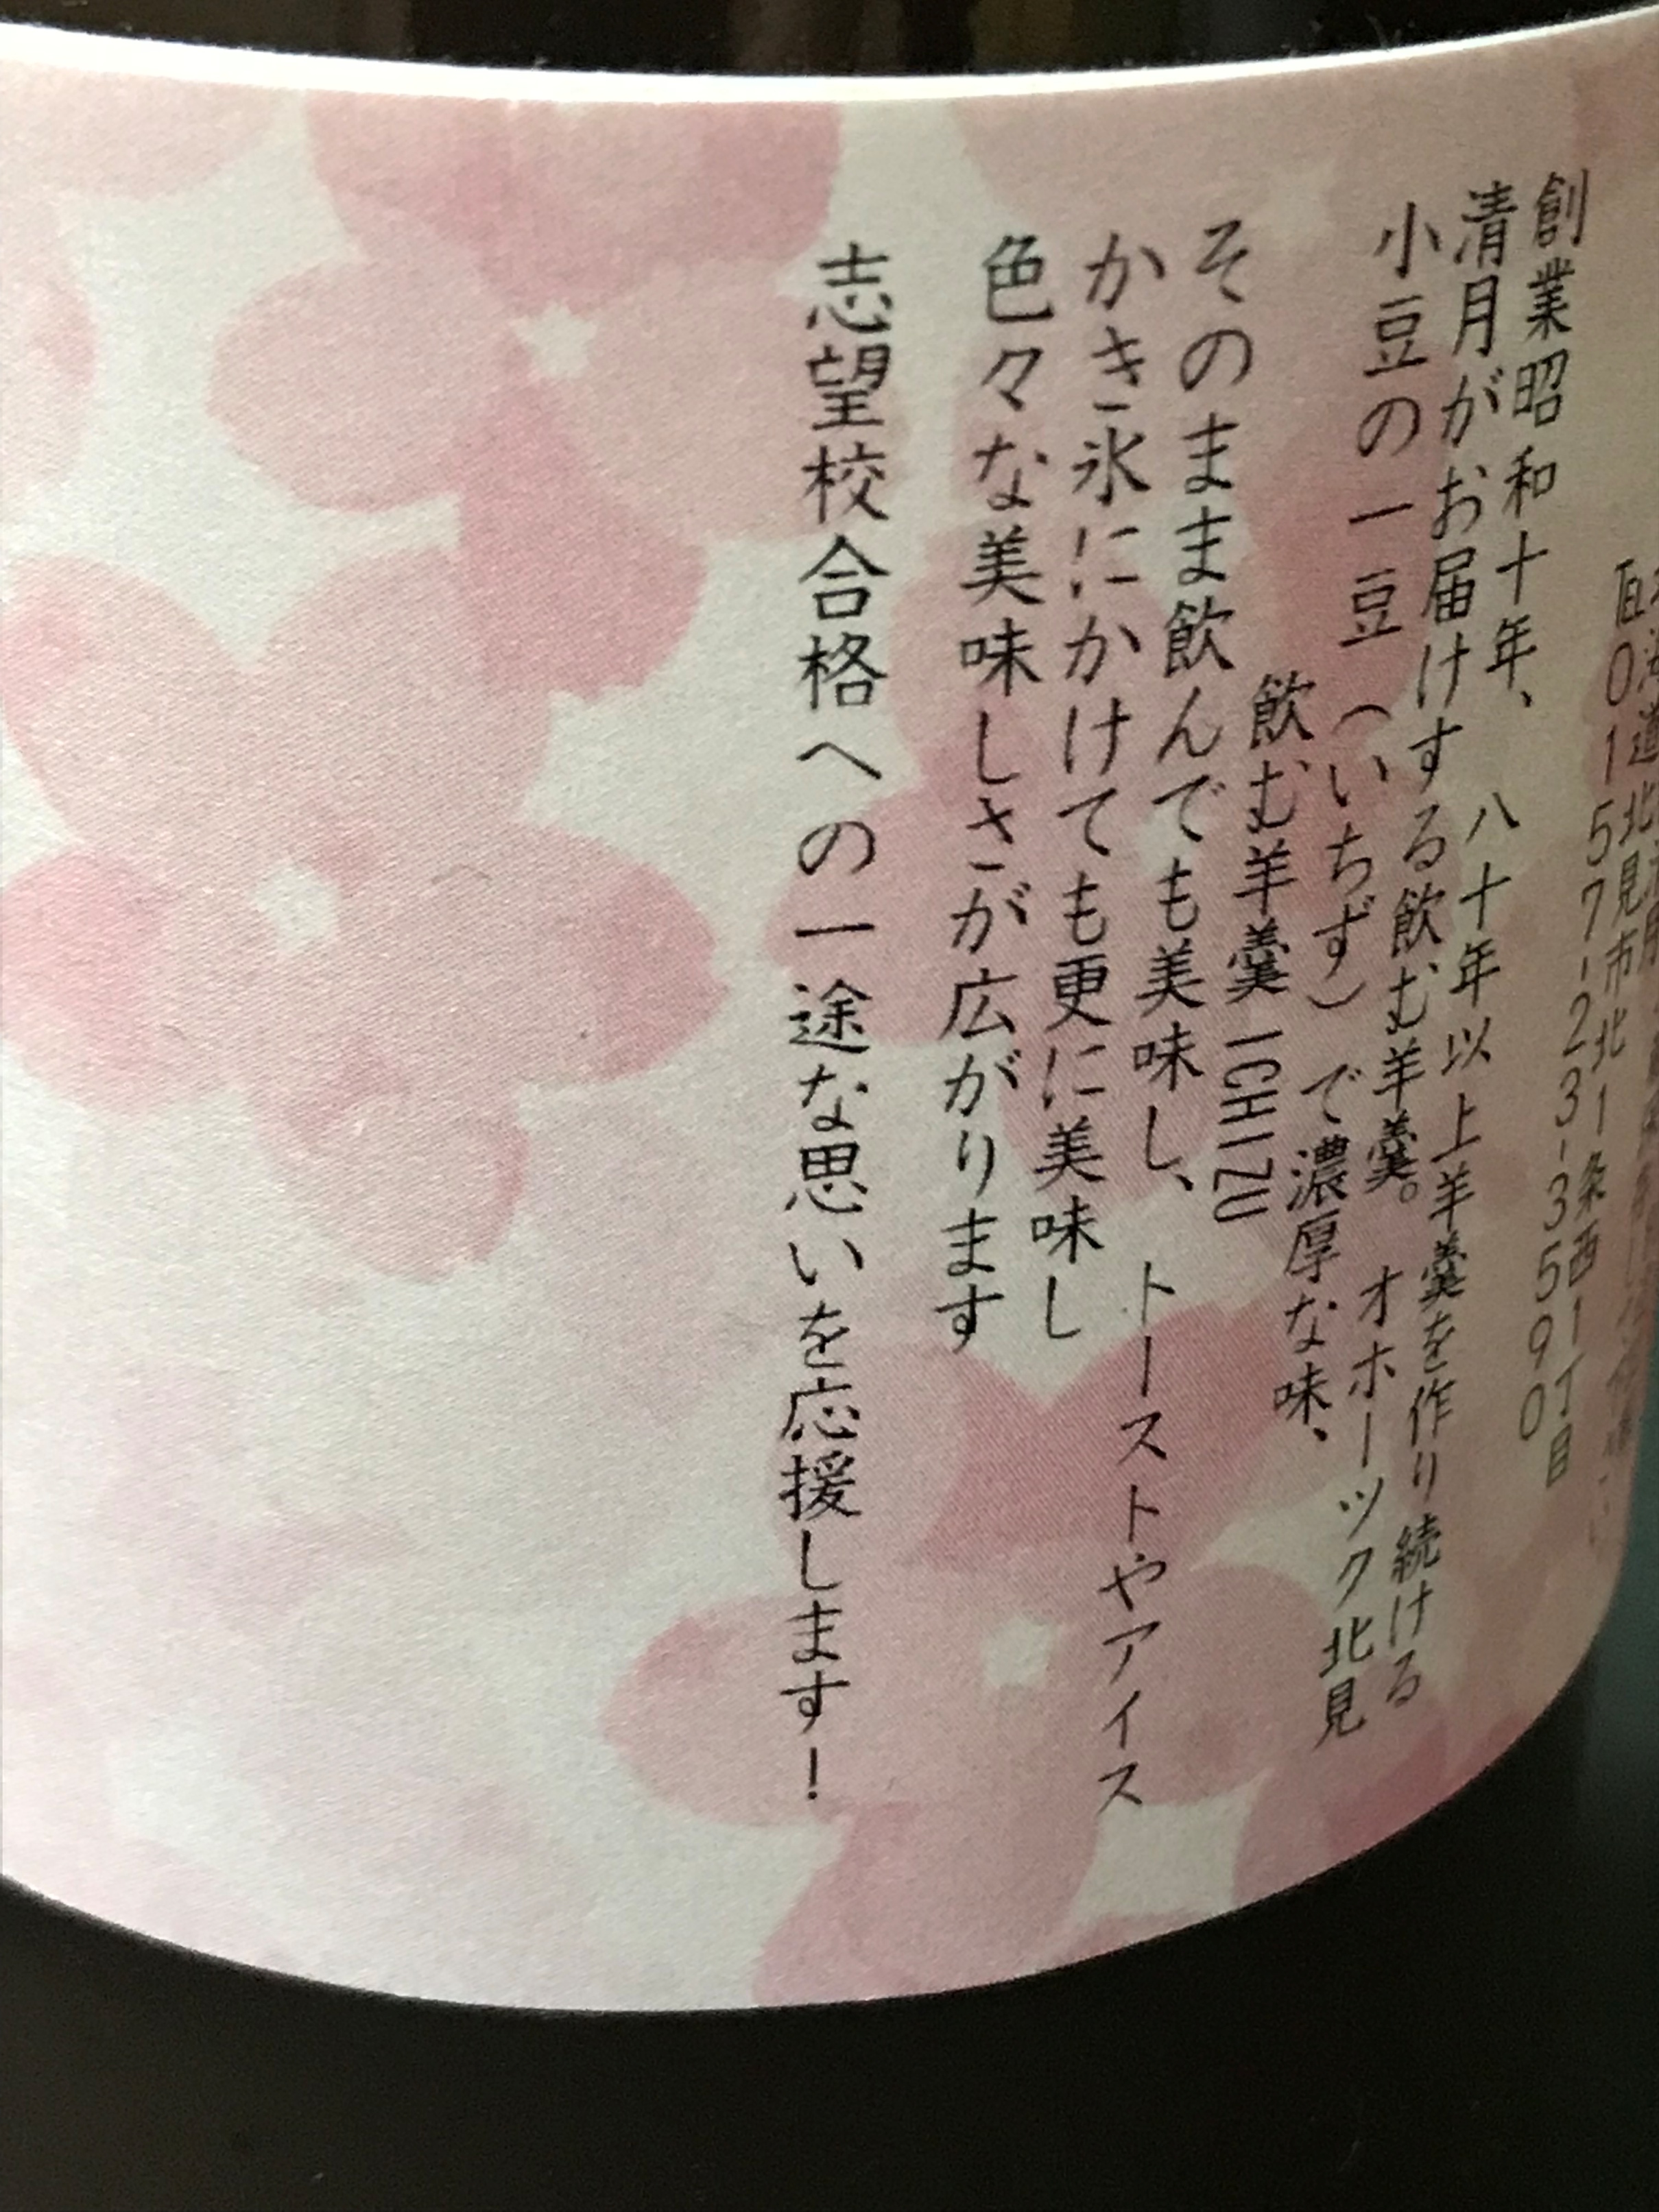 北海道北見市北1条西1丁目
TEL0157-23-3590
創業昭和十年、八十年以上羊羹を作り続ける
清月がお届けする飲む羊羹。オホーツク北見
小豆の一豆(いちず)で濃厚な味、
飲む羊羹ICHIZU
そのまま飲んでも美味し、トーストやアイス
かき氷にかけても更に美味し
色々な美味しさが広がります
志望校合格への一途な思いを応援します!